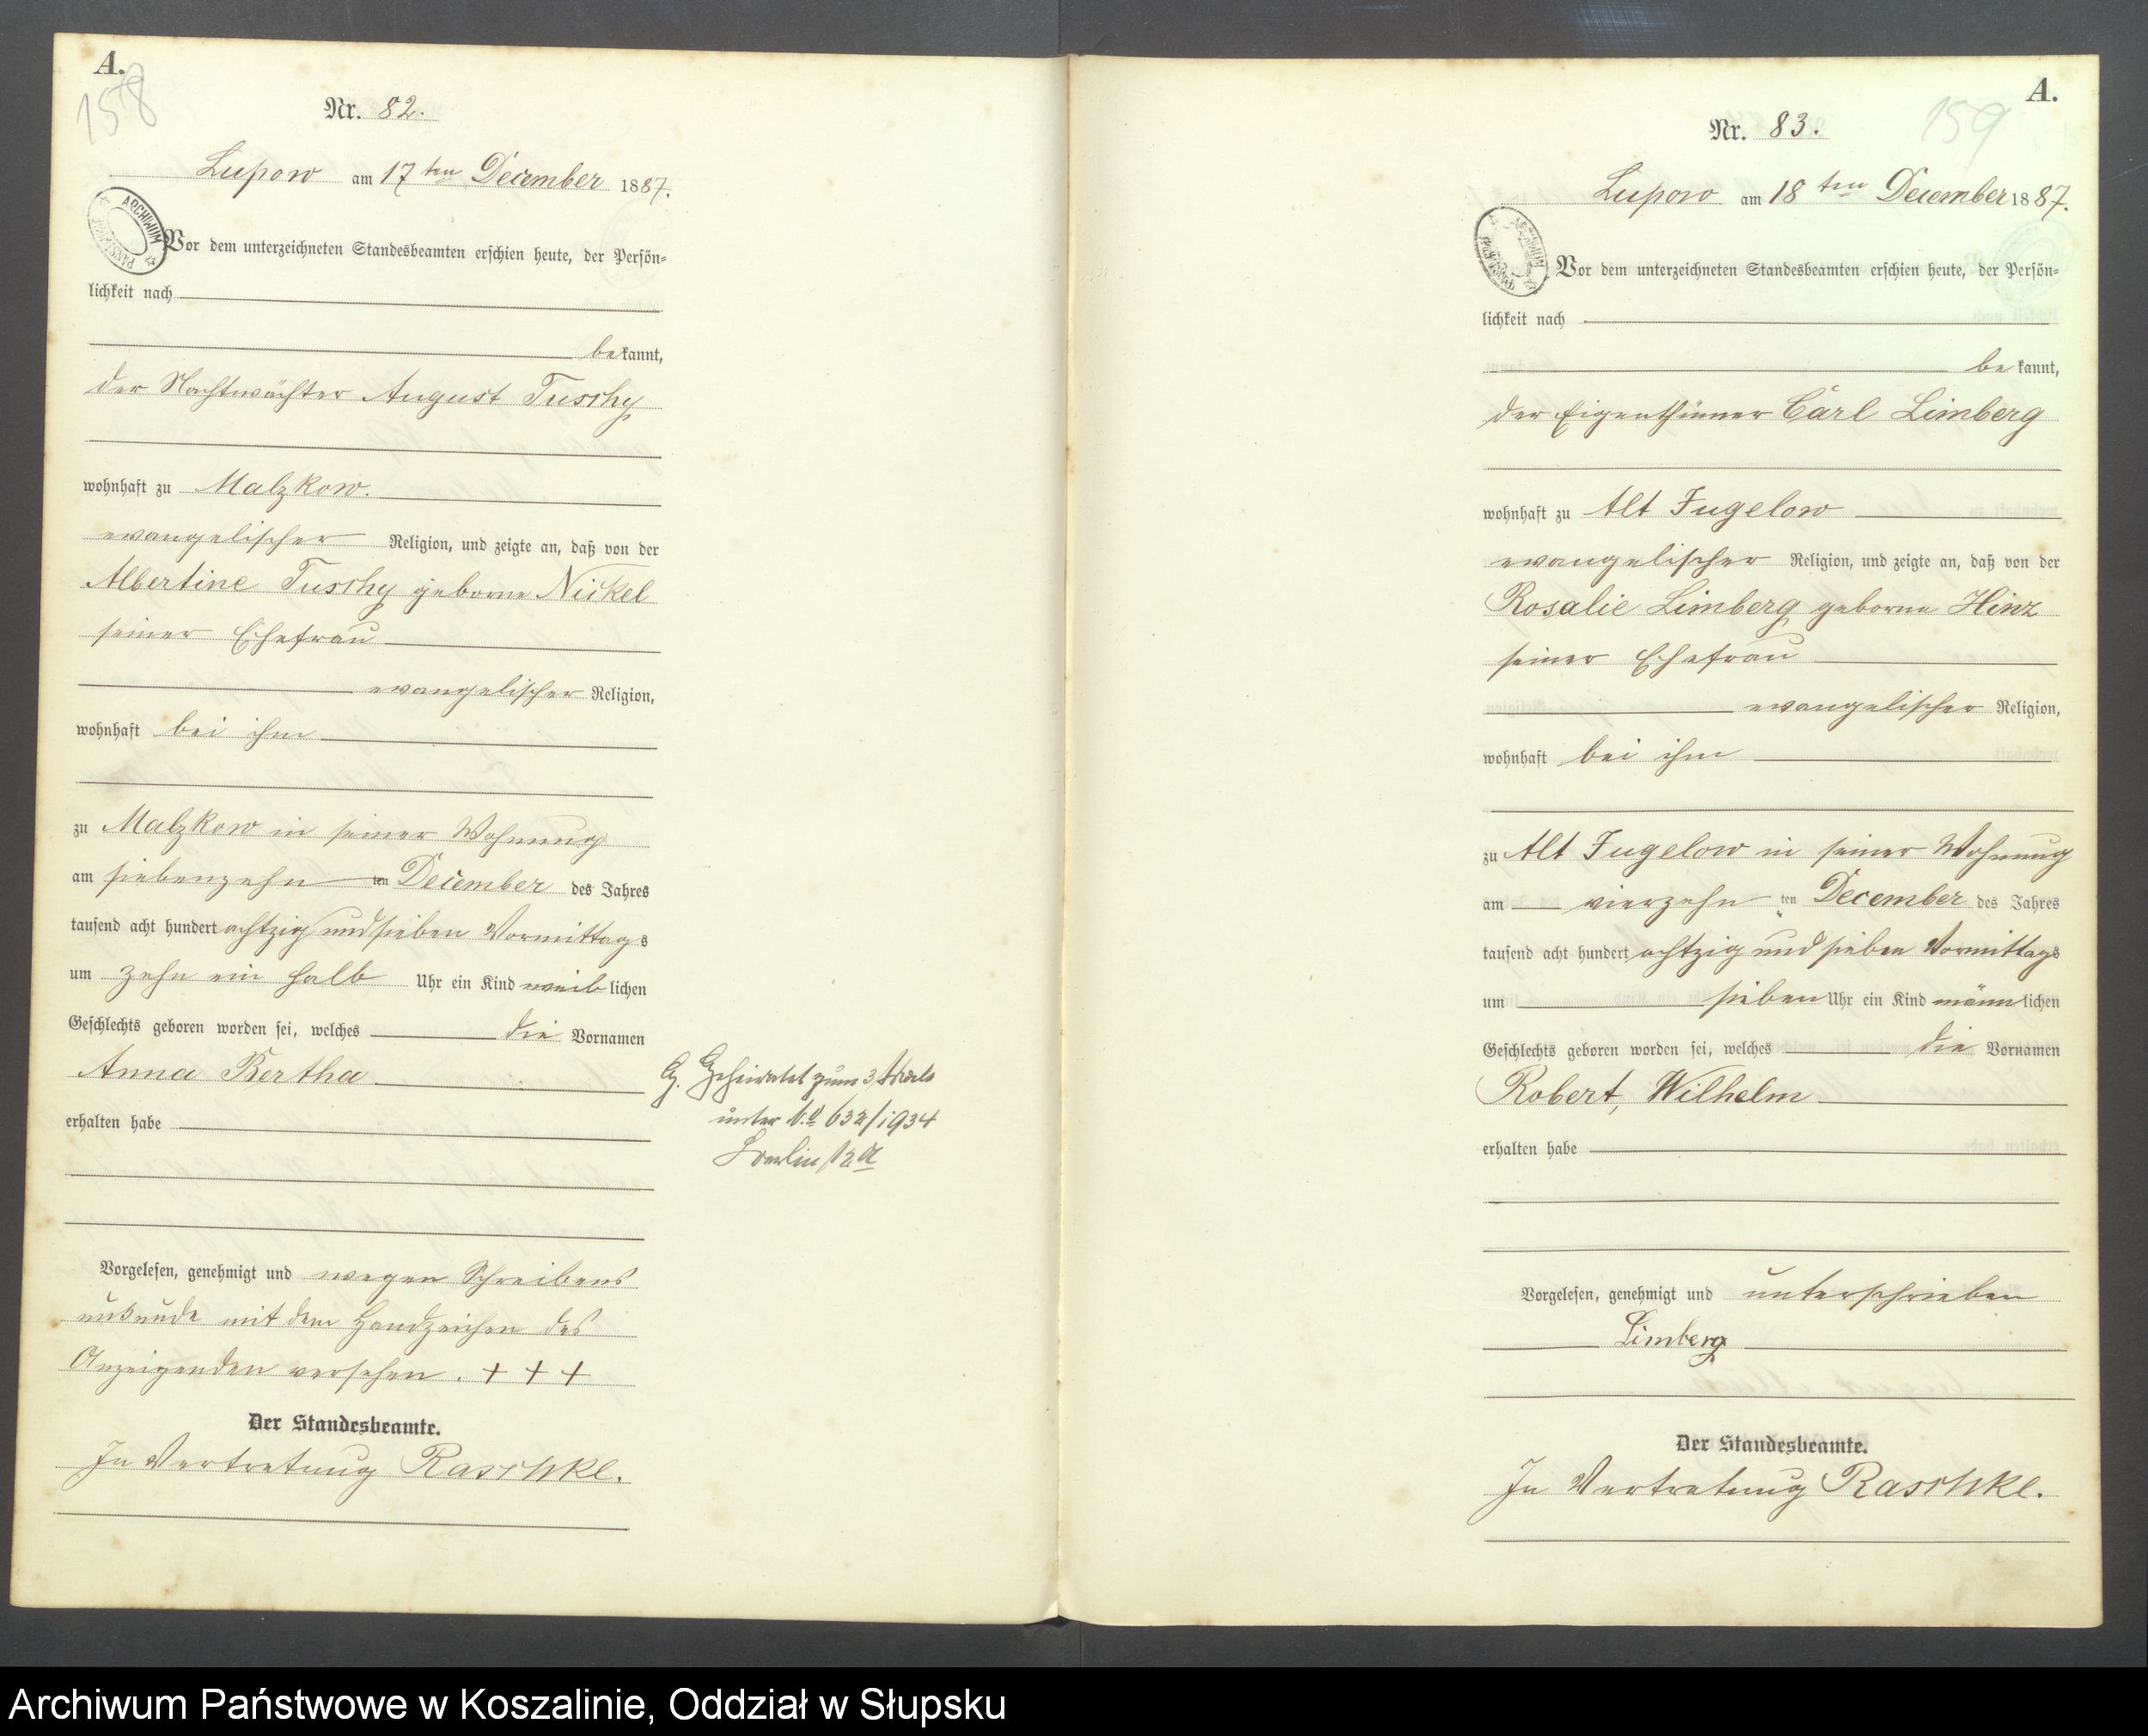 A.
158
Nr. 82.
Lupow am 17ten December 1887.
ARCHIWUM
Vor dem unterzeichneten Standesbeamten erschien heute, der Persön-
lichkeit nach
bekannt,
der Nachtwächter August Tuschy
wohnhaft zu Malzkow.
evangelischer Religion, und zeigte an, daß von der
Albertine Tuschy geborne Nickel
seiner Ehefrau
evangelischer Religion,
wohnhaft bei ihm
zu Malzkow in seiner Wohnung
am siebenzehn ten December des Jahres
tausend acht hundert achtzig und sieben Vormittags
um zehn ein halb Uhr ein Kind weiblichen
Geschlechts geboren worden sei, welches die Vornamen
Anna Bertha
erhalten habe
G. Geheiratet zum 3. Male
unter No 632/1934
Berlin 12a
Vorgelesen, genehmigt und wegen Schreibens
unkunde mit dem Handzeichen des
Anzeigenden versehen. + + +
Der Standesbeamte.
In Vertretung Raschke.
A.
159
Nr. 83.
Lupow am 18ten December 1887.
ARCHIWUM
Vor dem unterzeichneten Standesbeamten erschien heute, der Persön-
lichkeit nach
bekannt,
der Eigenthümer Carl Limberg
wohnhaft zu Alt Jugelow
evangelischer Religion, und zeigte an, daß von der
Rosalie Limberg geborne Hinz
seiner Ehefrau
evangelischer Religion,
wohnhaft bei ihm
zu Alt Jugelow in seiner Wohnung
am vierzehn ten December des Jahres
tausend acht hundert achtzig und sieben Vormittags
um sieben Uhr ein Kind männlichen
Geschlechts geboren worden sei, welches die Vornamen
Robert, Wilhelm
erhalten habe
Vorgelesen, genehmigt und unterschrieben
Limberg
Der Standesbeamte.
In Vertretung Raschke.
Archiwum Państwowe w Koszalinie, Oddział w Słupsku